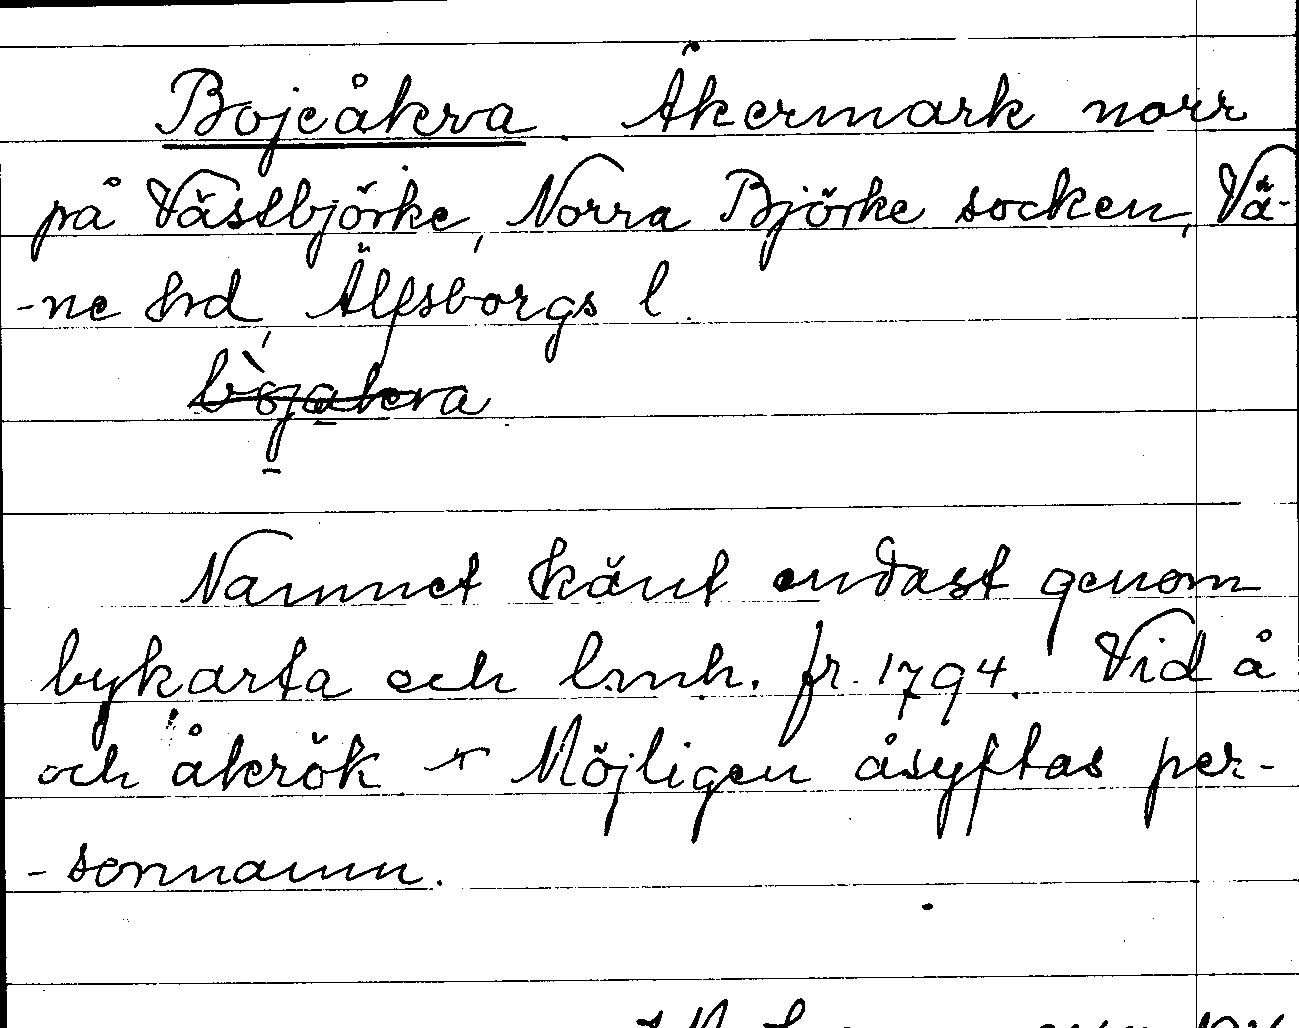 Bojeåkra. Åkermark norr
på Västbjörke, Norra Björke socken, Vä-
-ne hrd, Älfsborgs l.
Namnet känt endast genom
bykarta och lmh. fr. 1794. Vid å
och åkrök Möjligen åsyftas per-
-sonnamn.